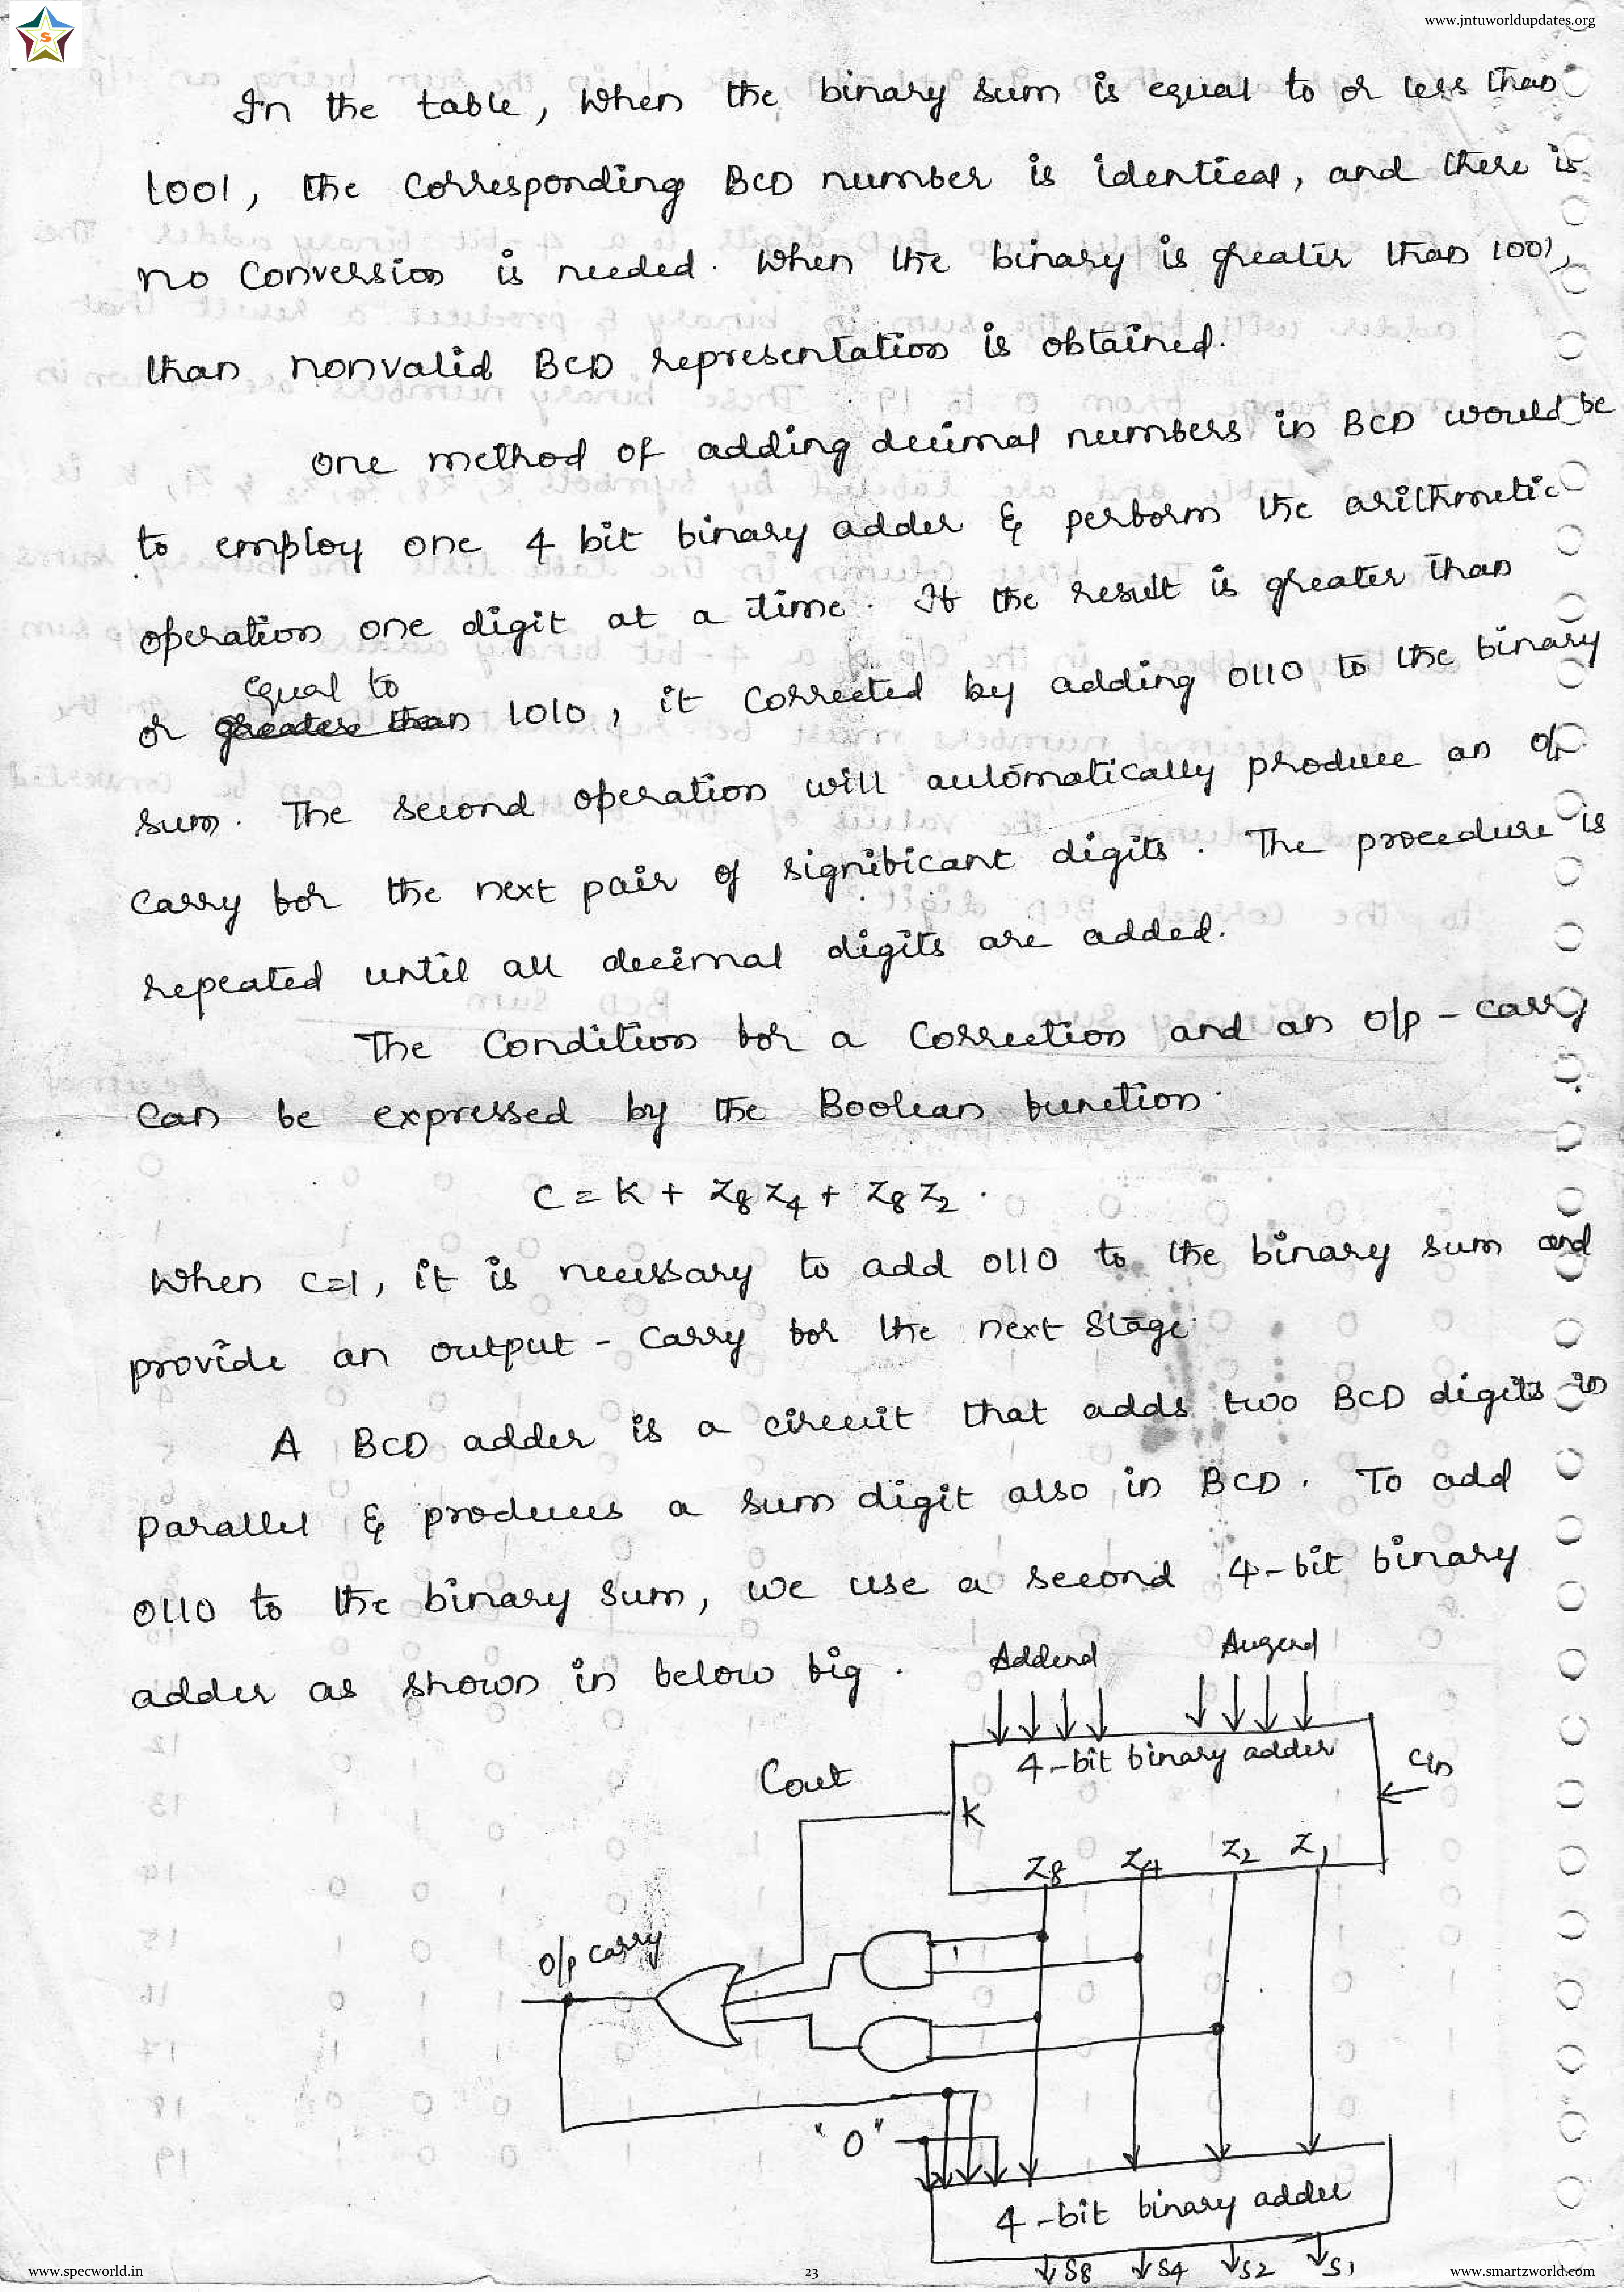 S
www.jntuworldupdates.org
In the table, when the binary sum is equal to or less than
1001, the corresponding BCD number is identical, and there is
no conversion is needed. When the binary is greater than 1001,
than nonvalid BCD representation is obtained.
One method of adding decimal numbers in BCD would be
to employ one 4 bit binary adder & perform the arithmetic
operation one digit at a time. If the result is greater than
equal to
or greater than 1010, it corrected by adding 0110 to the binary
sum. The second operation will automatically produce an o/p
carry for the next pair of significant digits. The procedure is
repeated until all decimal digits are added.
The Condition for a Correction and an o/p - carry
can be expressed by the Boolean function.
C = K + Z8 Z4 + Z8 Z2.
When C=1, it is necessary to add 0110 to the binary sum and
provide an output - carry for the next stage
A BCD adder is a circuit that adds two BCD digits in
parallel & produces a sum digit also in BCD. To add
0110 to the binary sum, we use a second 4-bit binary
adder as shown in below fig.
Addend Augend
4-bit binary adder
Cout
Cin
K
Z8 Z4 Z2 Z1
o/p carry
"0"
4-bit binary adder
S8 S4 S2 S1
www.specworld.in
23
www.smartzworld.com